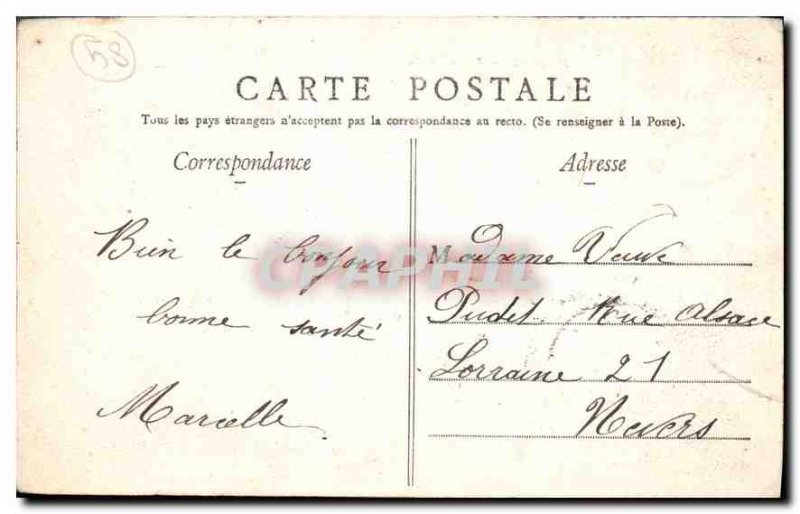 58
CARTE POSTALE
Tous les pays étrangers n'acceptent pas la correspondance au recto. (Se renseigner à la Poste).
Correspondance
Adresse
Bien le bonjour
bonne santé
Marcelle
Madame Veuve
Pudet Rue Alsace
Lorraine 21
Nevers
CPAPHIL